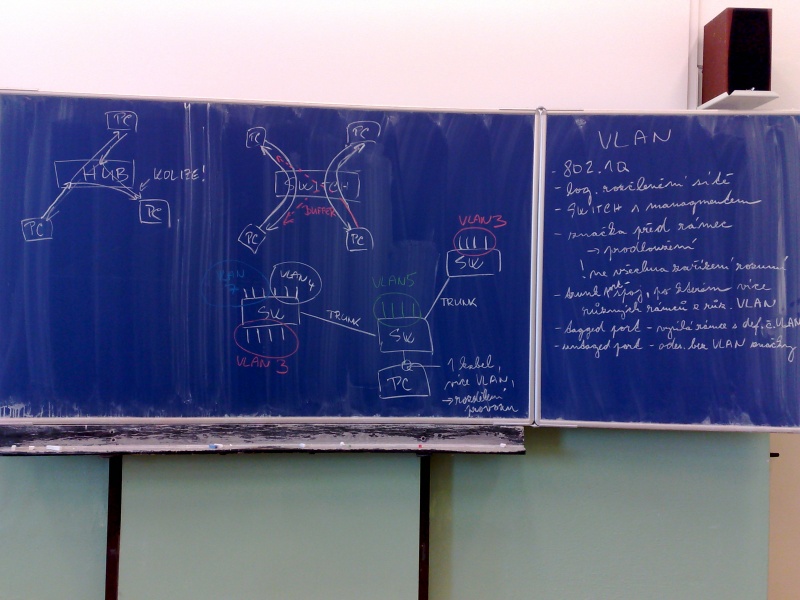 PC
HUB
KOLIZE!
PC
PC
PC
PC
SWITCH
BUFFER
PC
PC
VLAN
VLAN 4
SW
VLAN 3
TRUNK
VLAN5
SW
PC
TRUNK
VLAN 3
SW
1 kabel,
více VLAN,
→ rozdělení
provozu
VLAN
- 802.1Q
- log. rozčlenění sítě
- SWITCH s managmentem
- značka před rámec
→ prodloužení
! ne všechna zařízení rozumí
spoj, po kterém více
různých rámců z růz. VLAN
- tagged port - vysílá rámce s def. č. VLAN
- untaged port - odes. bez VLAN značky